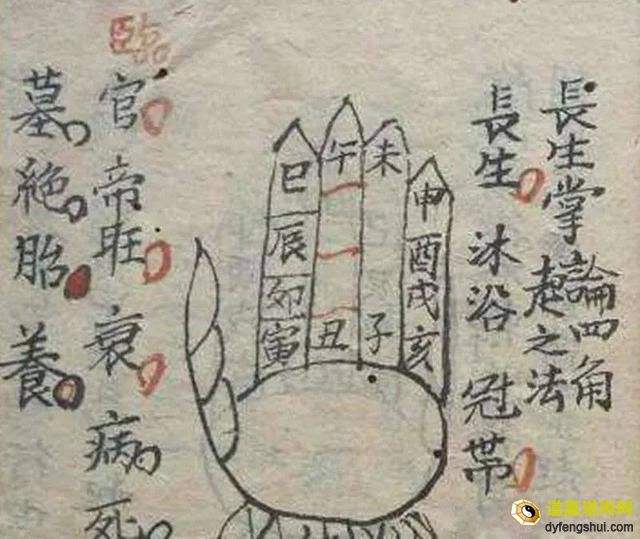 長生掌論四角
起之法
長生 沐浴 冠帯
巳 午 未 申
辰 酉
卯 戌
寅 丑 子 亥
臨
官 帝旺 衰 病 死
墓 絶 胎 養
道易道商网
dyfengshui.com